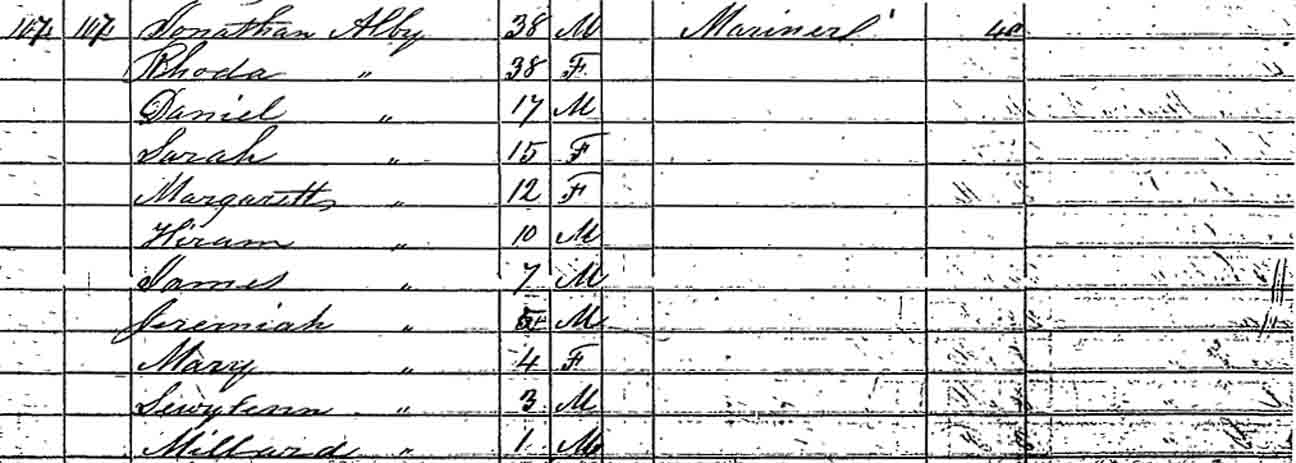 107 107 Jonathan Alby 38 M Mariner 40
Rhoda " 38 F
Daniel " 17 M
Sarah " 15 F
Margarett " 12 F
Hiram " 10 M
James " 7 M
Jeremiah " 5 M
Mary " 4 F
" 3 M
Millard " 1 M